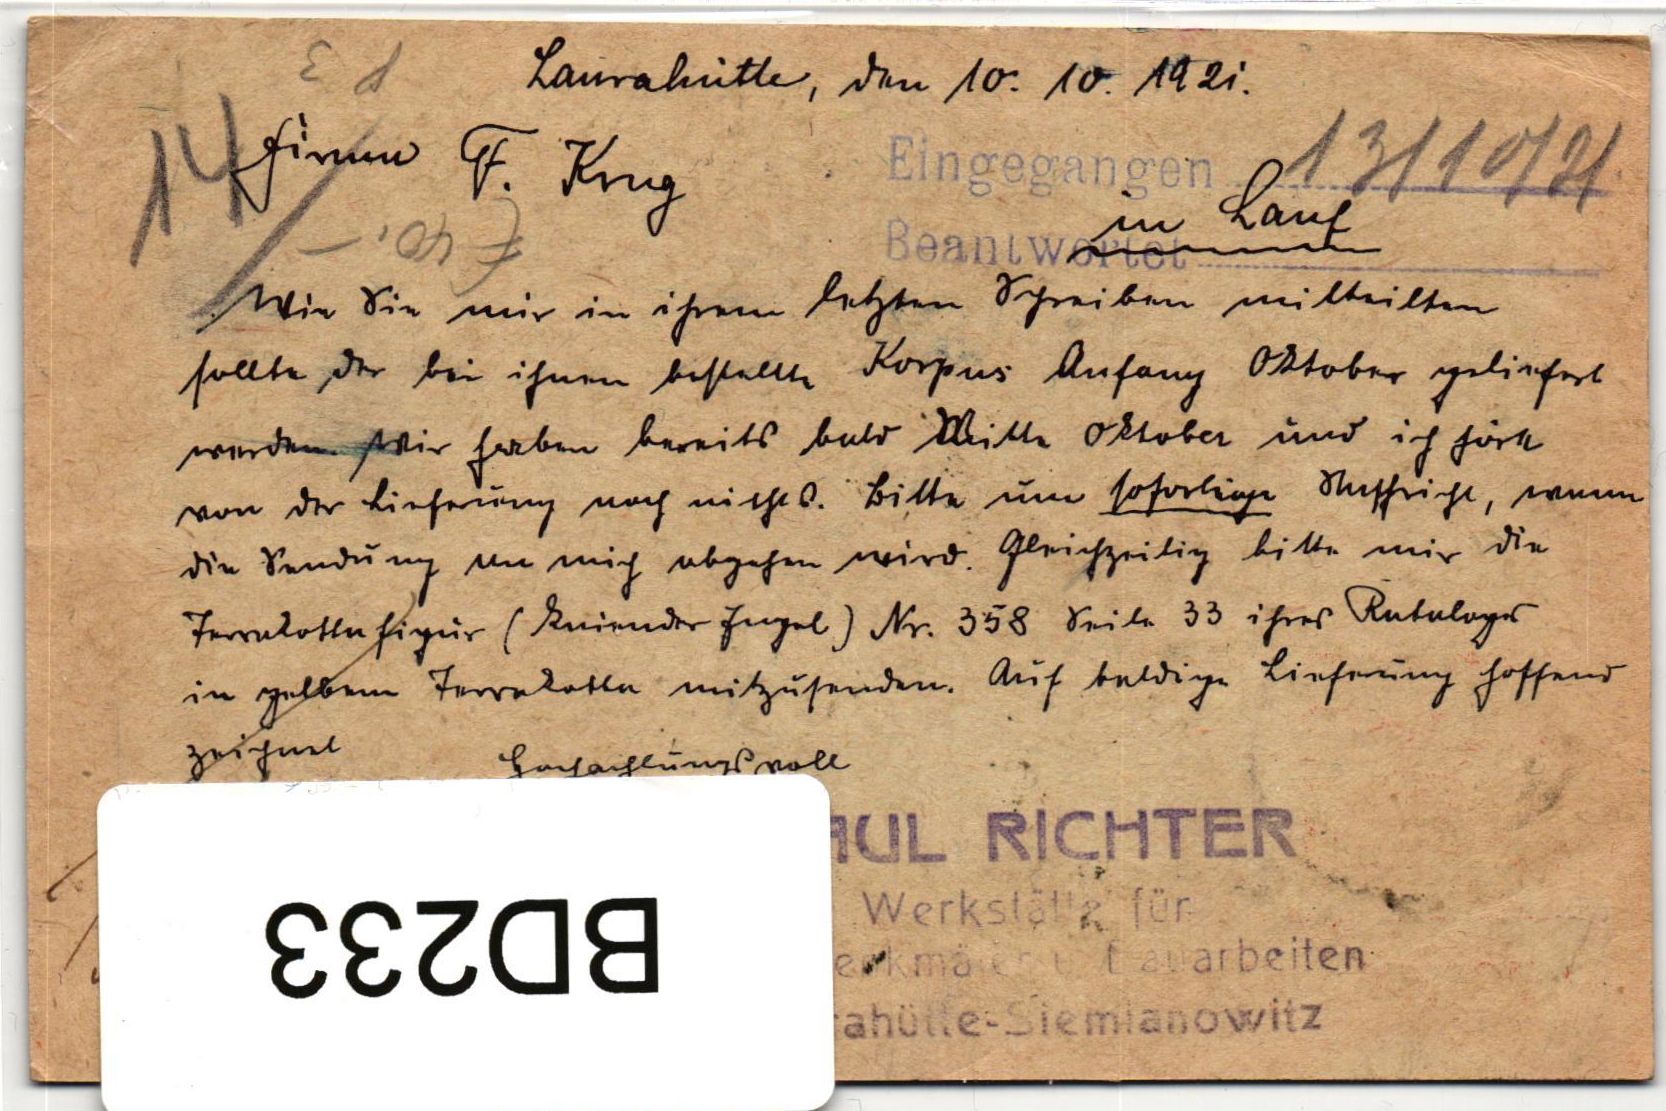 Laurahütte, den 10. 10. 1921.
14
Firma F. Krug
Eingegangen 13/10/21
in Lauf
Beantwortet
Wie Sie mir in ihrem letzten Schreiben mitteilten
sollte der bei ihnen bestellte Korpus Anfang Oktober geliefert
werden. Wir haben bereits bald Mitte Oktober und ich hörte
von der Lieferung noch nichts. Bitte um sofortige Nachricht, wann
die Sendung an mich abgehen wird. Gleichzeitig bitte mir die
Terrakottafigur (Kniender Engel) Nr. 358 Seite 33 ihres Kataloges
in gelbem Terrakotta mitzusenden. Auf baldige Lieferung hoffend
zeichnet
Hochachtungsvoll
AUL RICHTER
Werkstätte für
enkmäler u. Bauarbeiten
rahütte-Siemianowitz
BD233